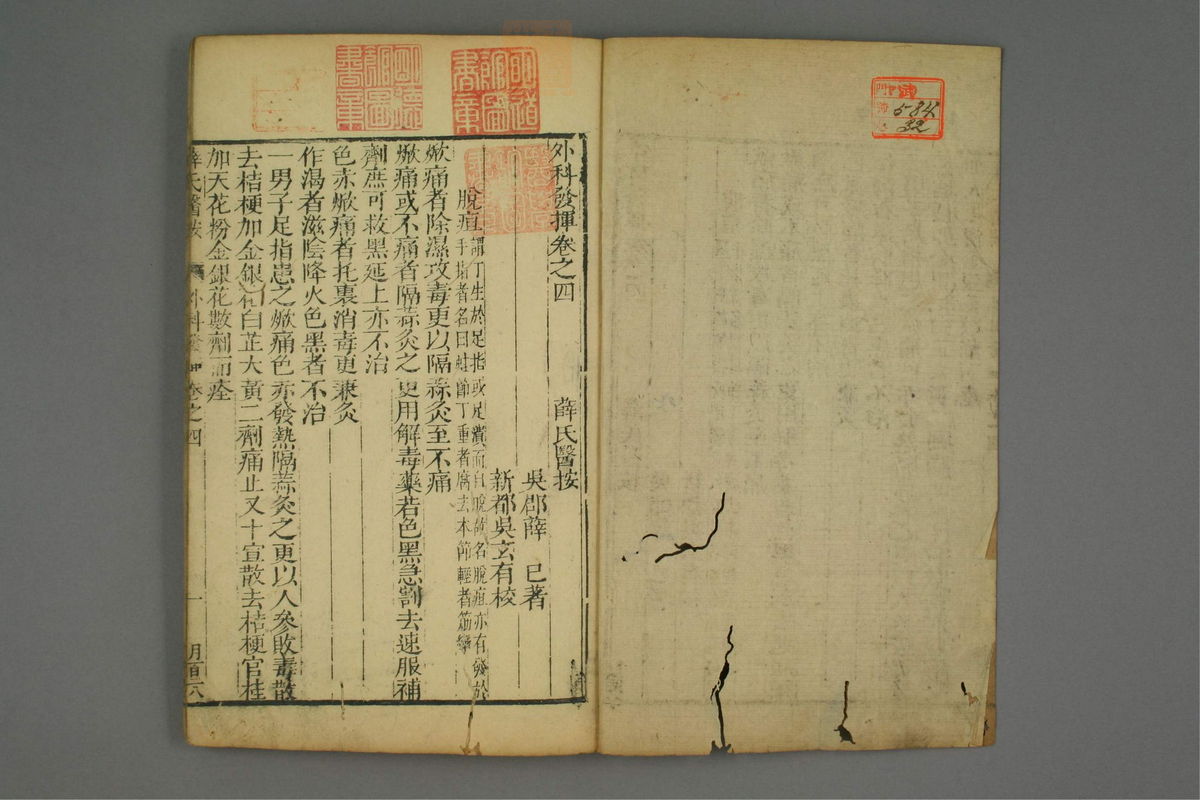 584
32
外科發揮卷之四 薛氏醫按
吳郡薛 已著
新都吳玄有校
脫疽 謂丁生於足指或足潰而自脫故名脫疽亦有發於
手指者名曰蛀節丁重者腐去本節輕者筋攣
焮痛者除濕攻毒更以隔蒜灸至不痛
焮痛或不痛者隔蒜灸之更用解毒藥若色黑急割去速服補
劑庶可救黑延上亦不治
色赤焮痛者托裏消毒更兼灸
作渴者滋陰降火色黑者不治
一男子足指患之焮痛色赤發熱隔蒜灸之更以人參敗毒散
去桔梗加金銀花白芷大黃二劑痛止又十宣散去桔梗官桂
加天花粉金銀花數劑而痊
薛氏醫按 外科發 卷之四 一 月百六
明德館圖書章
明道館圖書章